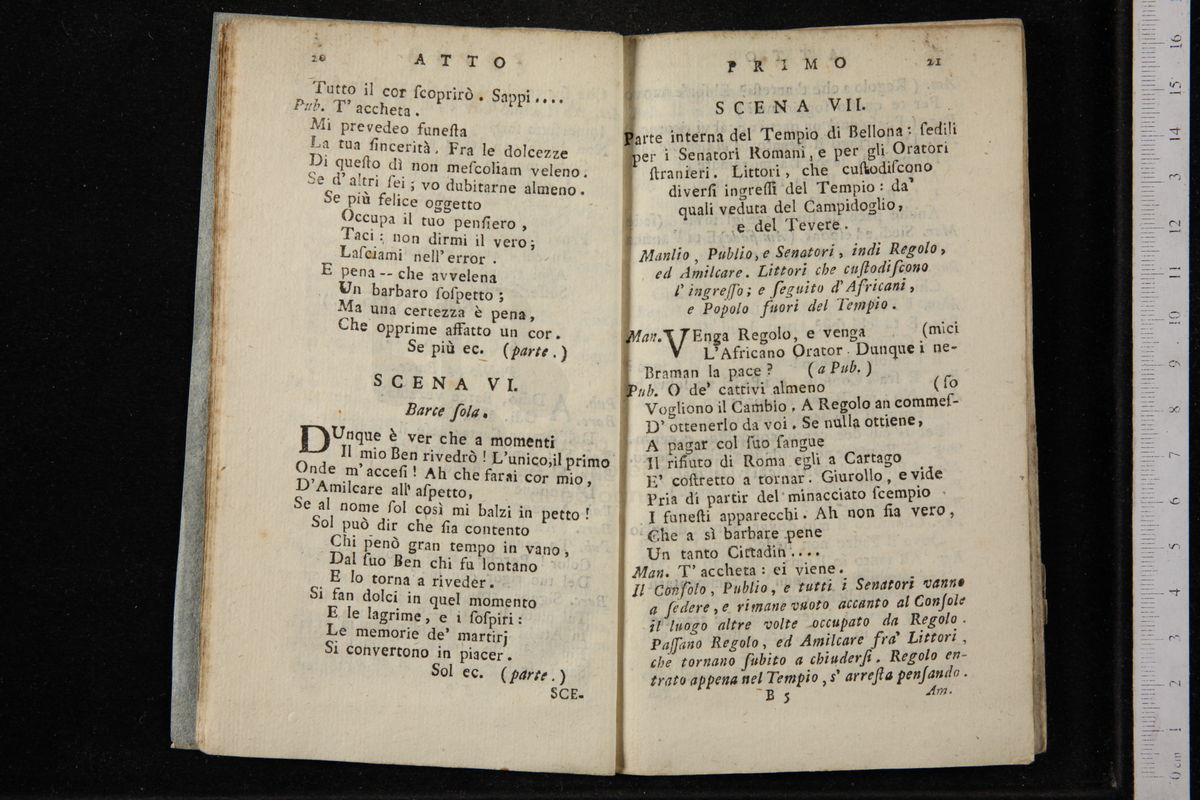 20 ATTO
Tutto il cor ſcoprirò. Sappi....
Pub. T' accheta.
Mi prevedeo funeſta
La tua ſincerità. Fra le dolcezze
Di queſto dì non meſcoliam veleno.
Se d'altri ſei; vo dubitarne almeno.
Se più felice oggetto
Occupa il tuo penſiero,
Taci: non dirmi il vero;
Laſciami nell'error.
E pena -- che avvelena
Un barbaro ſoſpetto;
Ma una certezza è pena,
Che opprime affatto un cor.
Se più ec. (parte.)
SCENA VI.
Barce ſola.
DUnque è ver che a momenti
Il mio Ben rivedrò! L'unico, il primo
Onde m'acceſi! Ah che farai cor mio,
D'Amilcare all' aſpetto,
Se al nome ſol così mi balzi in petto!
Sol può dir che ſia contento
Chi penò gran tempo in vano,
Dal ſuo Ben chi fu lontano
E lo torna a riveder.
Si fan dolci in quel momento
E le lagrime, e i ſoſpiri:
Le memorie de' martirj
Si convertono in piacer.
Sol ec. (parte.)
SCE-
PRIMO 21
SCENA VII.
Parte interna del Tempio di Bellona: ſedili
per i Senatori Romani, e per gli Oratori
ſtranieri. Littori, che cuſtodiſcono
diverſi ingreſſi del Tempio: da'
quali veduta del Campidoglio,
e del Tevere.
Manlio, Publio, e Senatori, indi Regolo,
ed Amilcare. Littori che cuſtodiſcono
l'ingreſſo; e ſeguito d'Africani,
e Popolo fuori del Tempio.
Man. VEnga Regolo, e venga (mici
L'Africano Orator. Dunque i ne-
Braman la pace? (a Pub.)
Pub. O de' cattivi almeno (ſo
Vogliono il Cambio. A Regolo an commeſ-
D' ottenerlo da voi. Se nulla ottiene,
A pagar col ſuo ſangue
Il rifiuto di Roma egli a Cartago
E' coſtretto a tornar. Giurollo, e vide
Pria di partir del minacciato ſcempio
I funeſti apparecchi. Ah non ſia vero,
Che a sì barbare pene
Un tanto Cittadin....
Man. T' accheta: ei viene.
Il Conſolo, Publio, e tutti i Senatori vanno
a ſedere, e rimane vuoto accanto al Conſole
il luogo altre volte occupato da Regolo.
Paſſano Regolo, ed Amilcare fra' Littori,
che tornano ſubito a chiuderſi. Regolo en-
trato appena nel Tempio, s' arreſta penſando.
B 5 Am.
0 cm 1 2 3 4 5 6 7 8 9 10 11 12 13 14 15 16